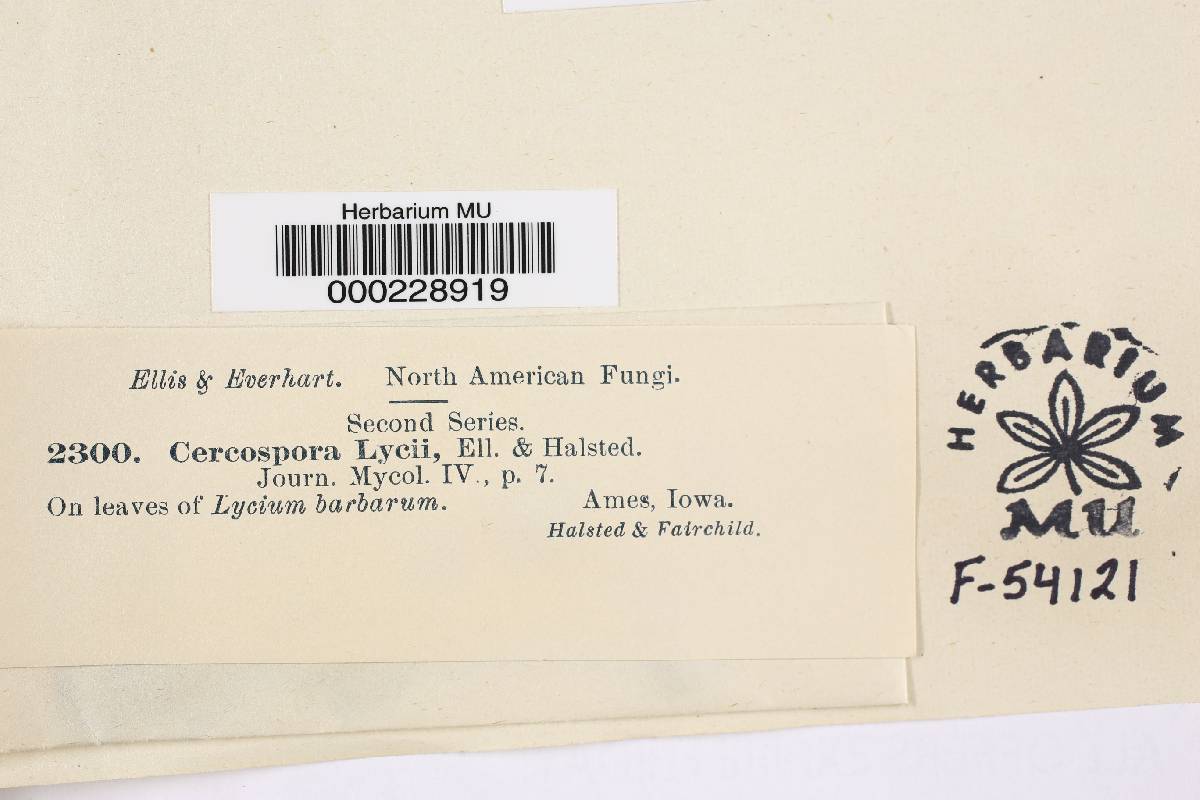 Herbarium MU
000228919
Ellis & Everhart. North American Fungi.
Second Series.
2300. Cercospora Lycii, Ell. & Halsted.
Journ. Mycol. IV., p. 7.
On leaves of Lycium barbarum. Ames, Iowa.
Halsted & Fairchild.
HERBARIUM
MU
F-54121